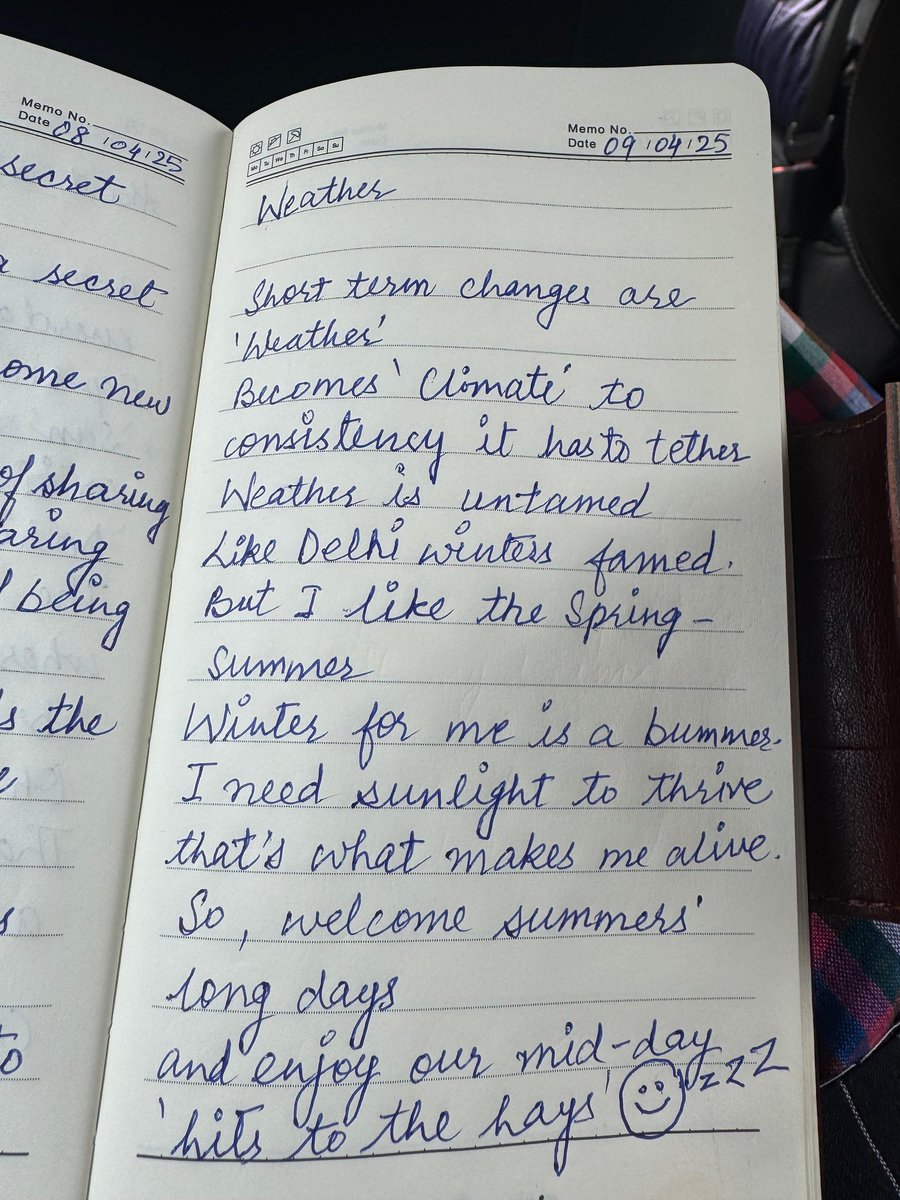 Memo No.
Date 08/04/25
secret
a secret
ome new
of sharing
aring
being
s the
e
s
to
Memo No.
Date 09/04/25
Mo Tu We Th Fr Sa Su
Weather
Short term changes are
'Weather'
Becomes 'Climate' to
consistency it has to tether
Weather is untamed
Like Delhi winters famed.
But I like the Spring-
Summer
Winter for me is a bummer.
I need sunlight to thrive
that's what makes me alive.
So, welcome summers'
long days
and enjoy our mid-day
'hits to the hays' zzz